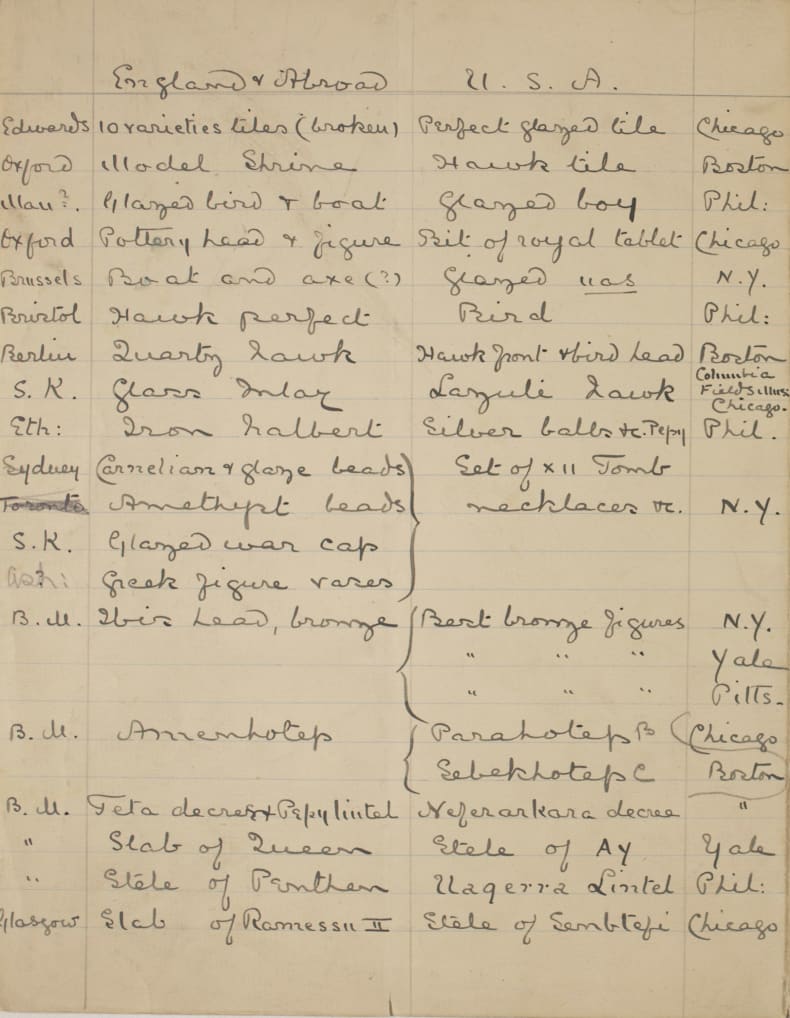 England & Abroad U. S. A.
Edwards 10 varieties tiles (broken) Perfect glazed tile Chicago
Oxford Model Shrine Hawk tile Boston
Man?. Glazed bird & boat Glazed boy Phil:
Oxford Pottery head & figure Bit of royal tablet Chicago
Brussels Boat and axe (?) Glazed uas N.Y.
Bristol Hawk perfect Bird Phil:
Berlin Quartz hawk Hawk front & bird head Boston
S. K. Glass Inlay Lazuli hawk Columbia Field Chicago.
Eth: Iron halbert Silver balls &c. Pepy Phil.
Sydney Carnelian & glaze beads Set of XII Tomb
Toronto Amethyst beads necklaces &c. N.Y.
S.K. Glazed war cap
Ash: Greek figure vases
B. M. Ibis head, bronze Best bronze figures N.Y.
" " " Yale
" " " Pitts.
B. M. Amenhotep Parahotep B Chicago
Sebekhotep C Boston
B. M. Teta decree & Pepy lintel Neferarkara decree "
" Slab of Queen Stele of Ay Yale
" Stele of Penthen Uaqerra Lintel Phil:
Glasgow Slab of Ramessu II Stele of Sembtefi Chicago